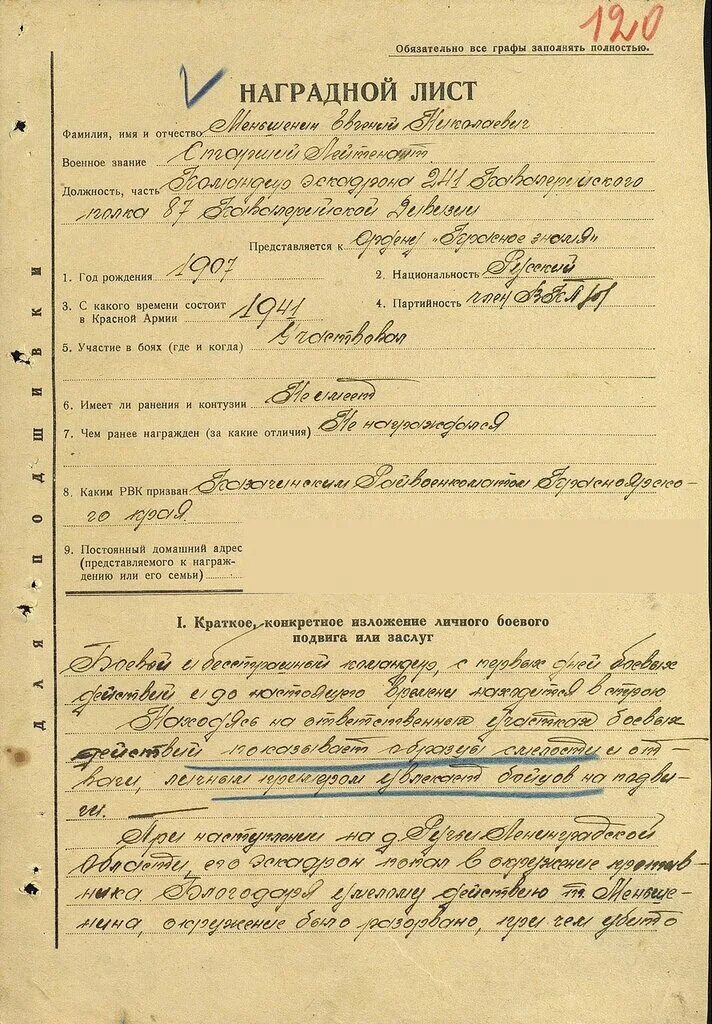 120
Обязательно все графы заполнять полностью.
НАГРАДНОЙ ЛИСТ
Фамилия, имя и отчество Меньшенин Евгений Николаевич
Военное звание Старший Лейтенант
Должность, часть Командир эскадрона 241 Кавалерийского
полка 87 Кавалерийской Дивизии
Представляется к Ордену „Красное знамя"
1. Год рождения 1907 2. Национальность Русский
3. С какого времени состоит в Красной Армии 1941 4. Партийность член ВКП(б)
5. Участие в боях (где и когда) Участвовал
6. Имеет ли ранения и контузии Не имеет
7. Чем ранее награжден (за какие отличия) Не награждался
8. Каким РВК призван Казачинским Райвоенкоматом Красноярско-
го края.
9. Постоянный домашний адрес
(представляемого к награж-
дению или его семьи)
I. Краткое, конкретное изложение личного боевого
подвига или заслуг
Боевой и бесстрашный командир, с первых дней боевых
действий и до настоящего времени находится в строю
Находясь на ответственных участках боевых
действий показывает образцы смелости и от-
ваги, личным примером увлекает бойцов на подви-
ги.
При наступлении на д. Ручьи Ленинградской
Области, его эскадрон попал в окружение против-
ника. Благодаря умелому действию т. Меньше-
нина, окружение было разорвано, при чем убито
ДЛЯ ПОДШИВКИ